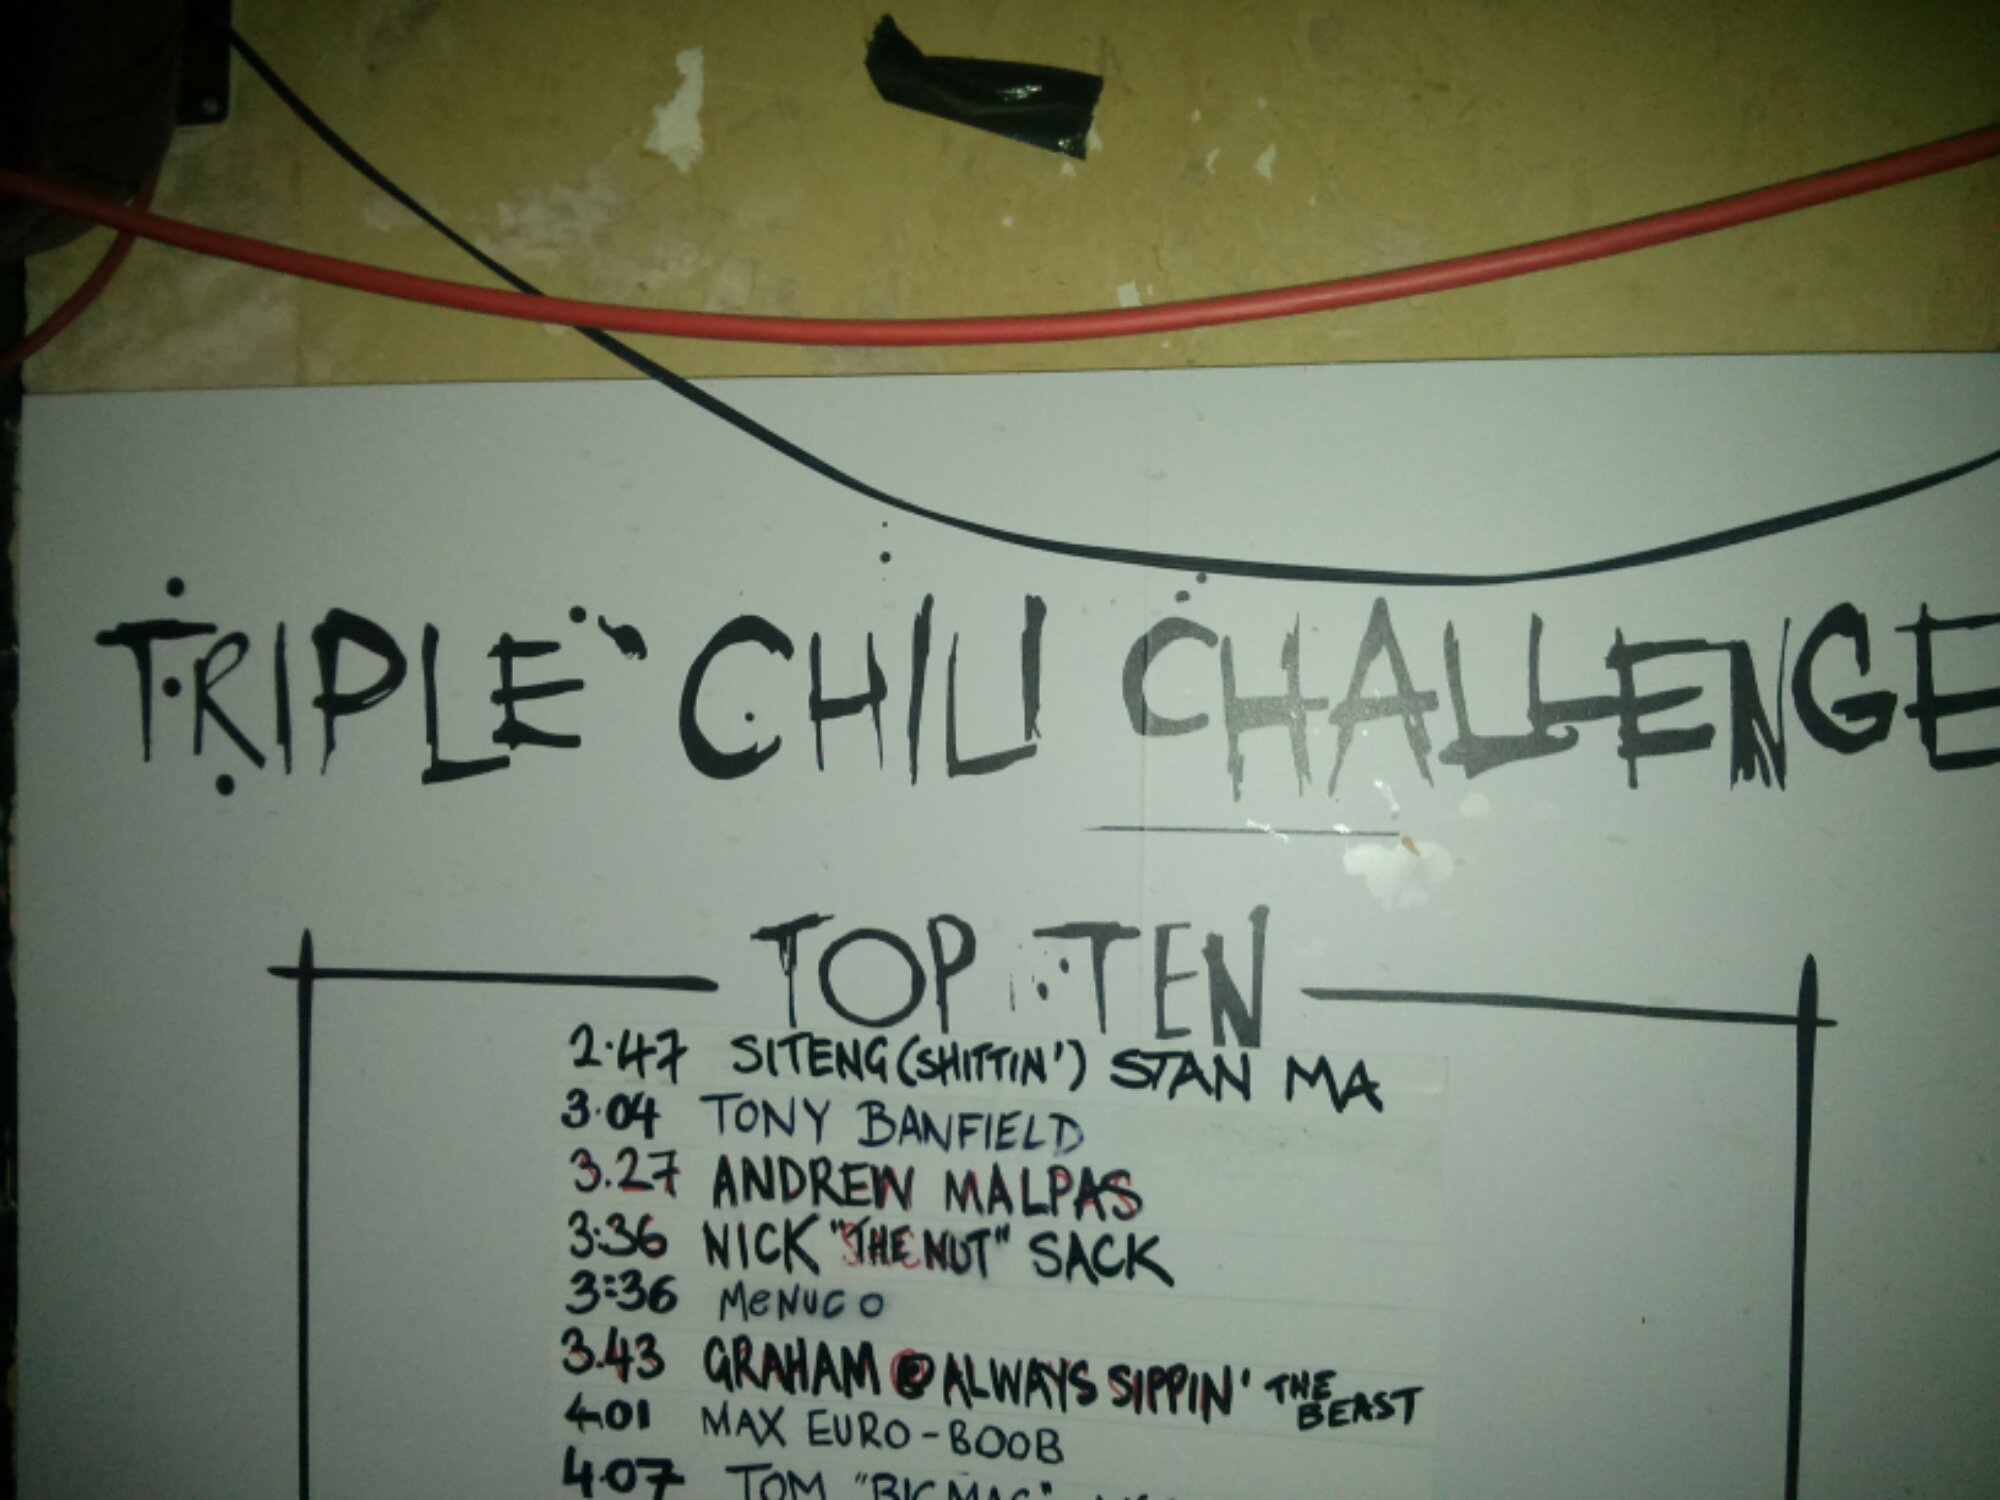 TRIPLE CHILI CHALLENGE
TOP TEN
2.47 SITENG (SHITTIN') STAN MA
3.04 TONY BANFIELD
3.27 ANDREW MALPAS
3:36 NICK "THE NUT" SACK
3:36 MeNUCO
3.43 GRAHAM @ALWAYS SIPPIN' THE BEAST
4.01 MAX EURO-BOOB
4.07 TOM "BIG MAC"